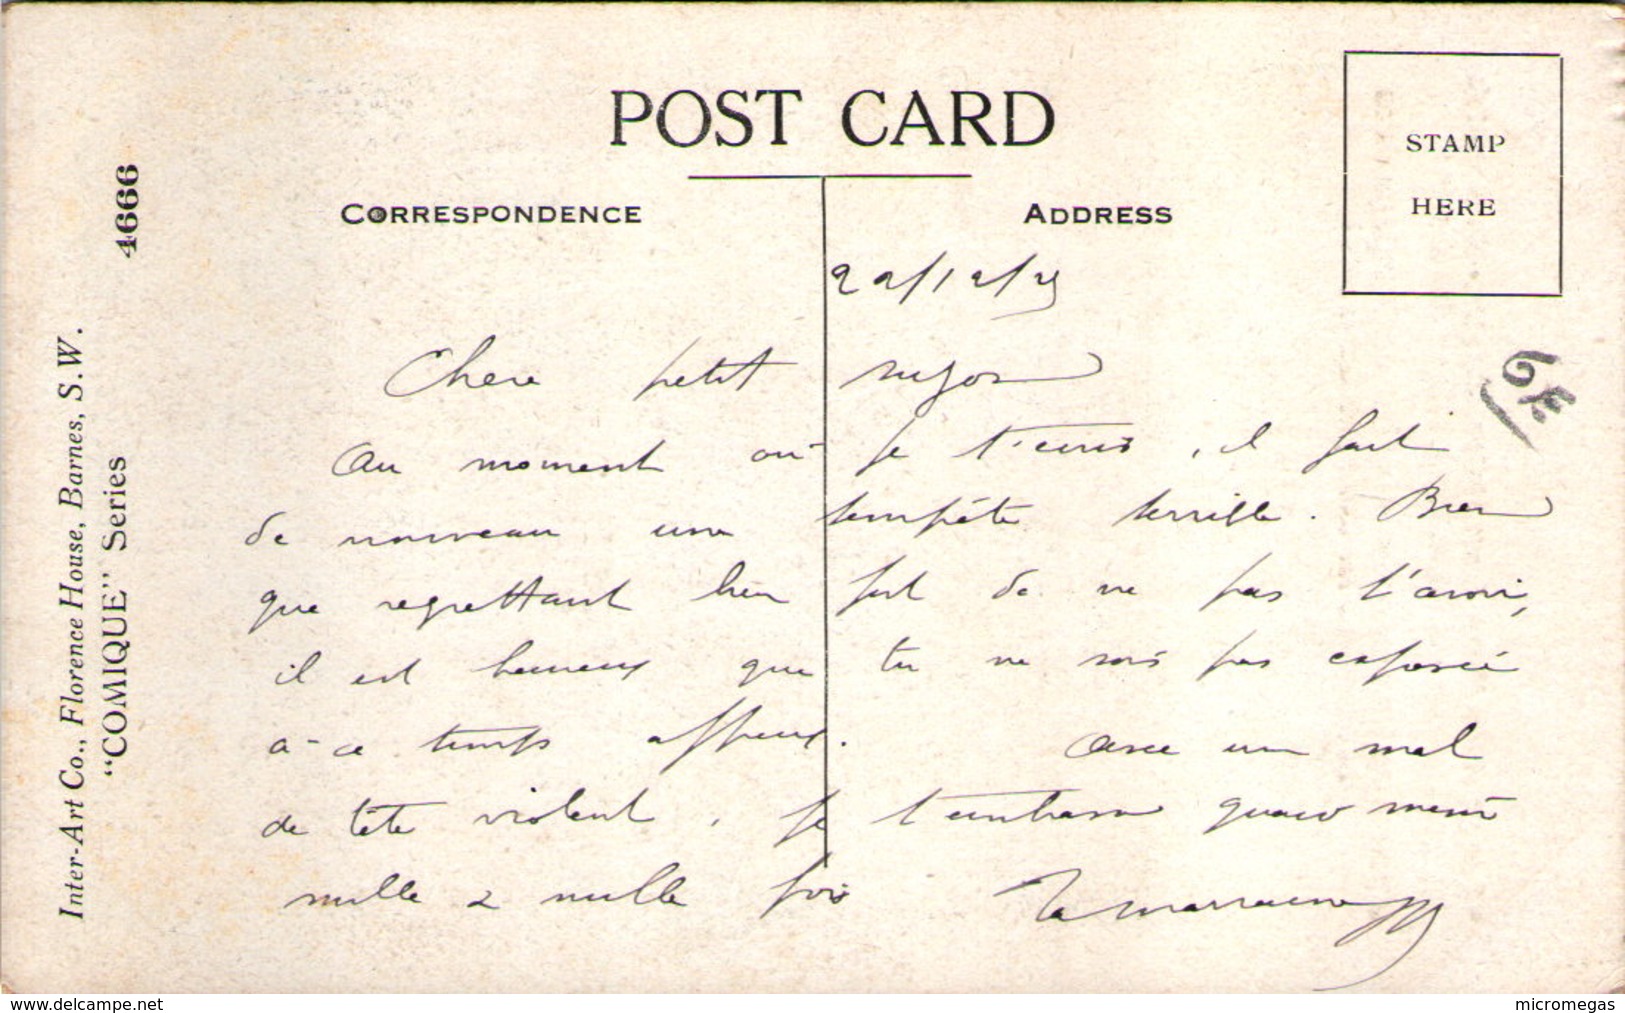 POST CARD
CORRESPONDENCE
ADDRESS
STAMP
HERE
Inter-Art Co., Florence House, Barnes, S.W.
"COMIQUE" Series
4666
22/12/25
Chere petit
Au moment où je t'ecris, il fait
de nouveau une tempête terrible. Bien
que regrettant bien fort de ne pas t'avoir,
il est heureux que tu ne sois pas exposée
à ce temps affreux. Avec un mal
de tête violent, je t'embrasse quand meme
mille & mille fois Ta marraine
www.delcampe.net
micromegas